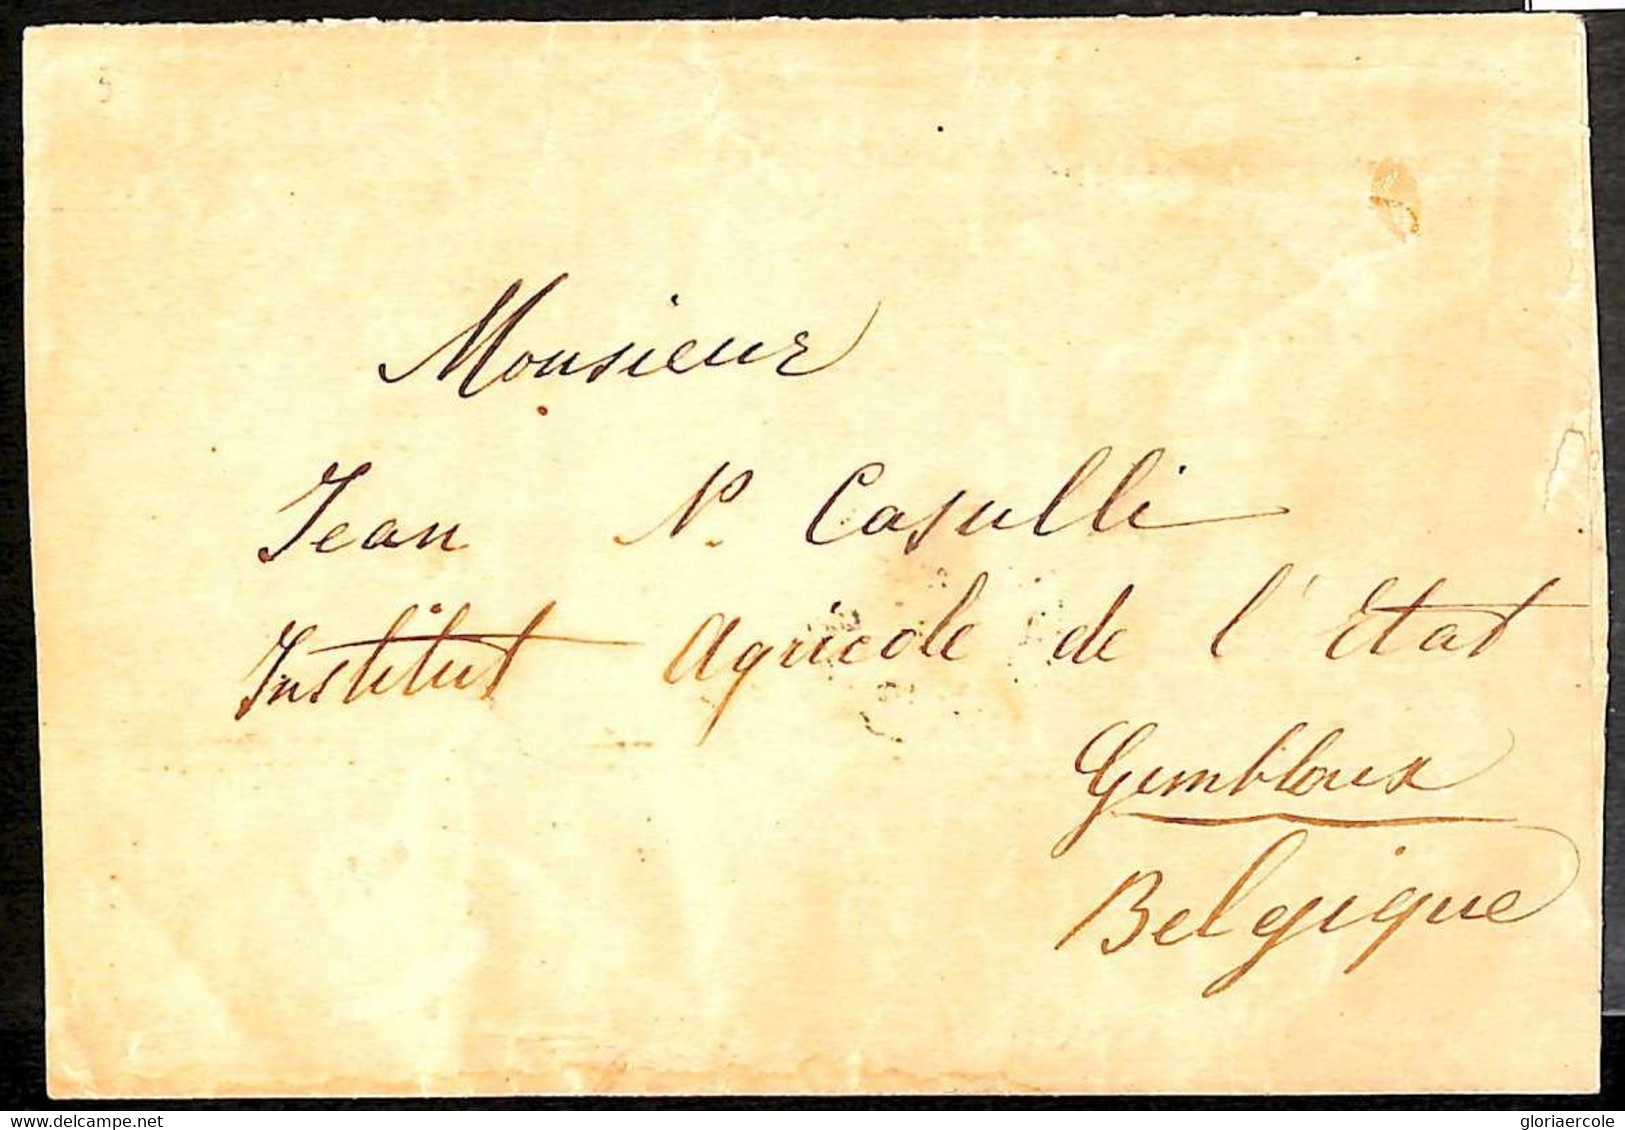 Monsieur
Jean N. Casulli
Institut Agricole de l'Etat
Gembloux
Belgique
delcampe.net
gloriaercole